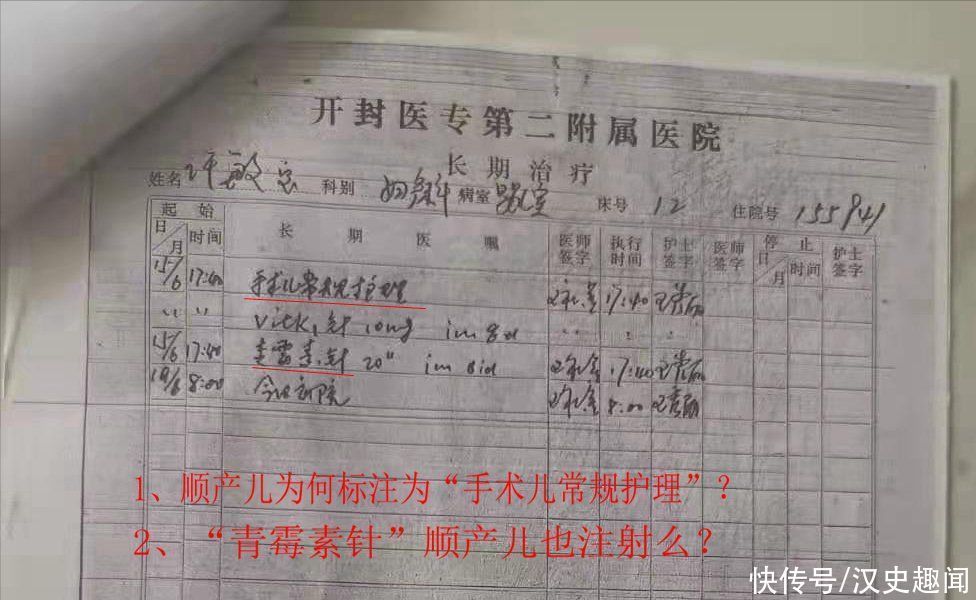 开封医专第二附属医院
长期治疗
姓名 许敏 科别 妇科 病室 床号 12 住院号 155941
起始 长期医嘱 医师签字 执行时间 护士签字 医师签字 停止 护士签字
日/月 时间 日/月 时间
15/6 17:40 手术儿常规护理 17:40
〃 〃 Vitk₁针 10mg im qd 〃
15/6 17:40 青霉素针 20" im bid 17:40
8:00 今日出院 8:00
1、顺产儿为何标注为“手术儿常规护理”?
2、“青霉素针”顺产儿也注射么?
快传号/汉史趣闻